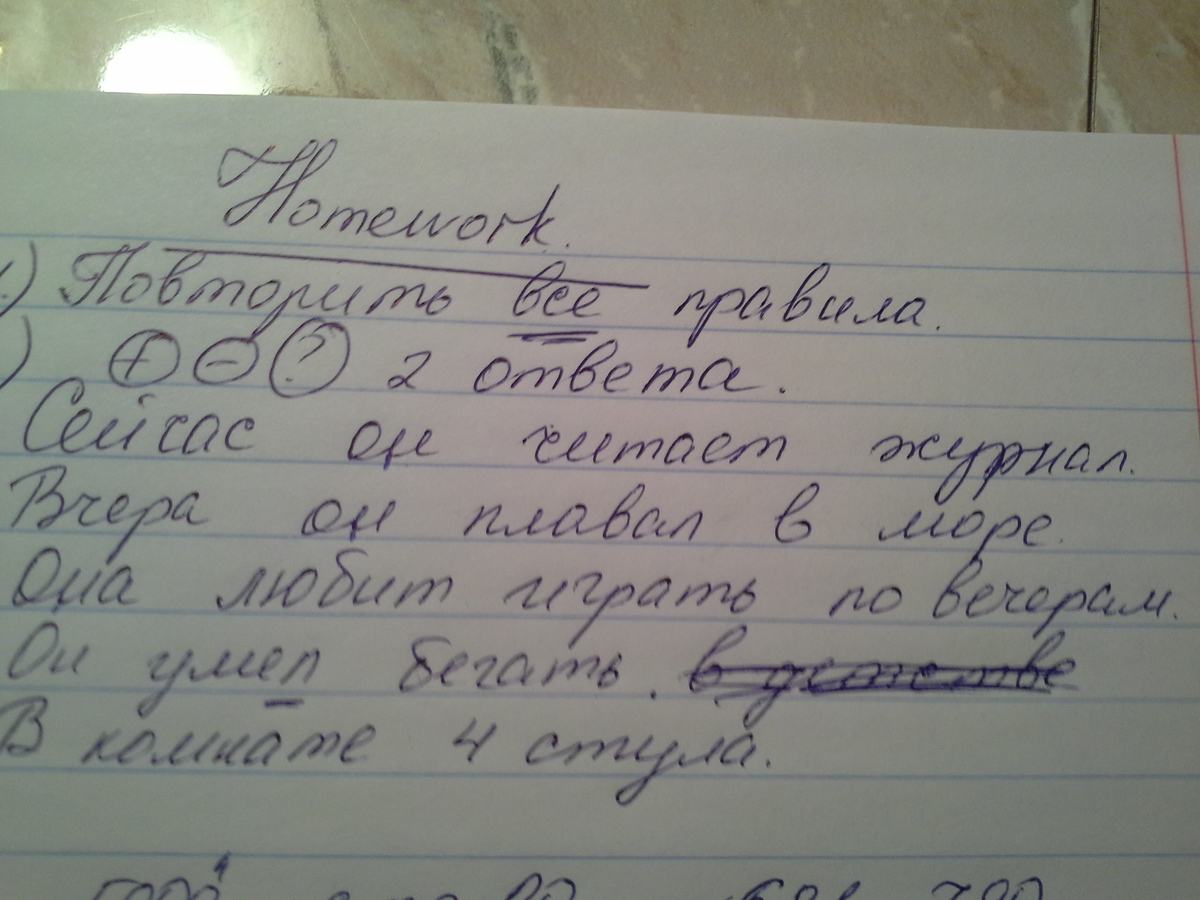 Homework.
) Повторить все правила.
) + - ? 2 ответа.
Сейчас он читает журнал.
Вчера он плавал в море.
Она любит играть по вечерам.
Он умел бегать. в детстве
В комнате 4 стула.